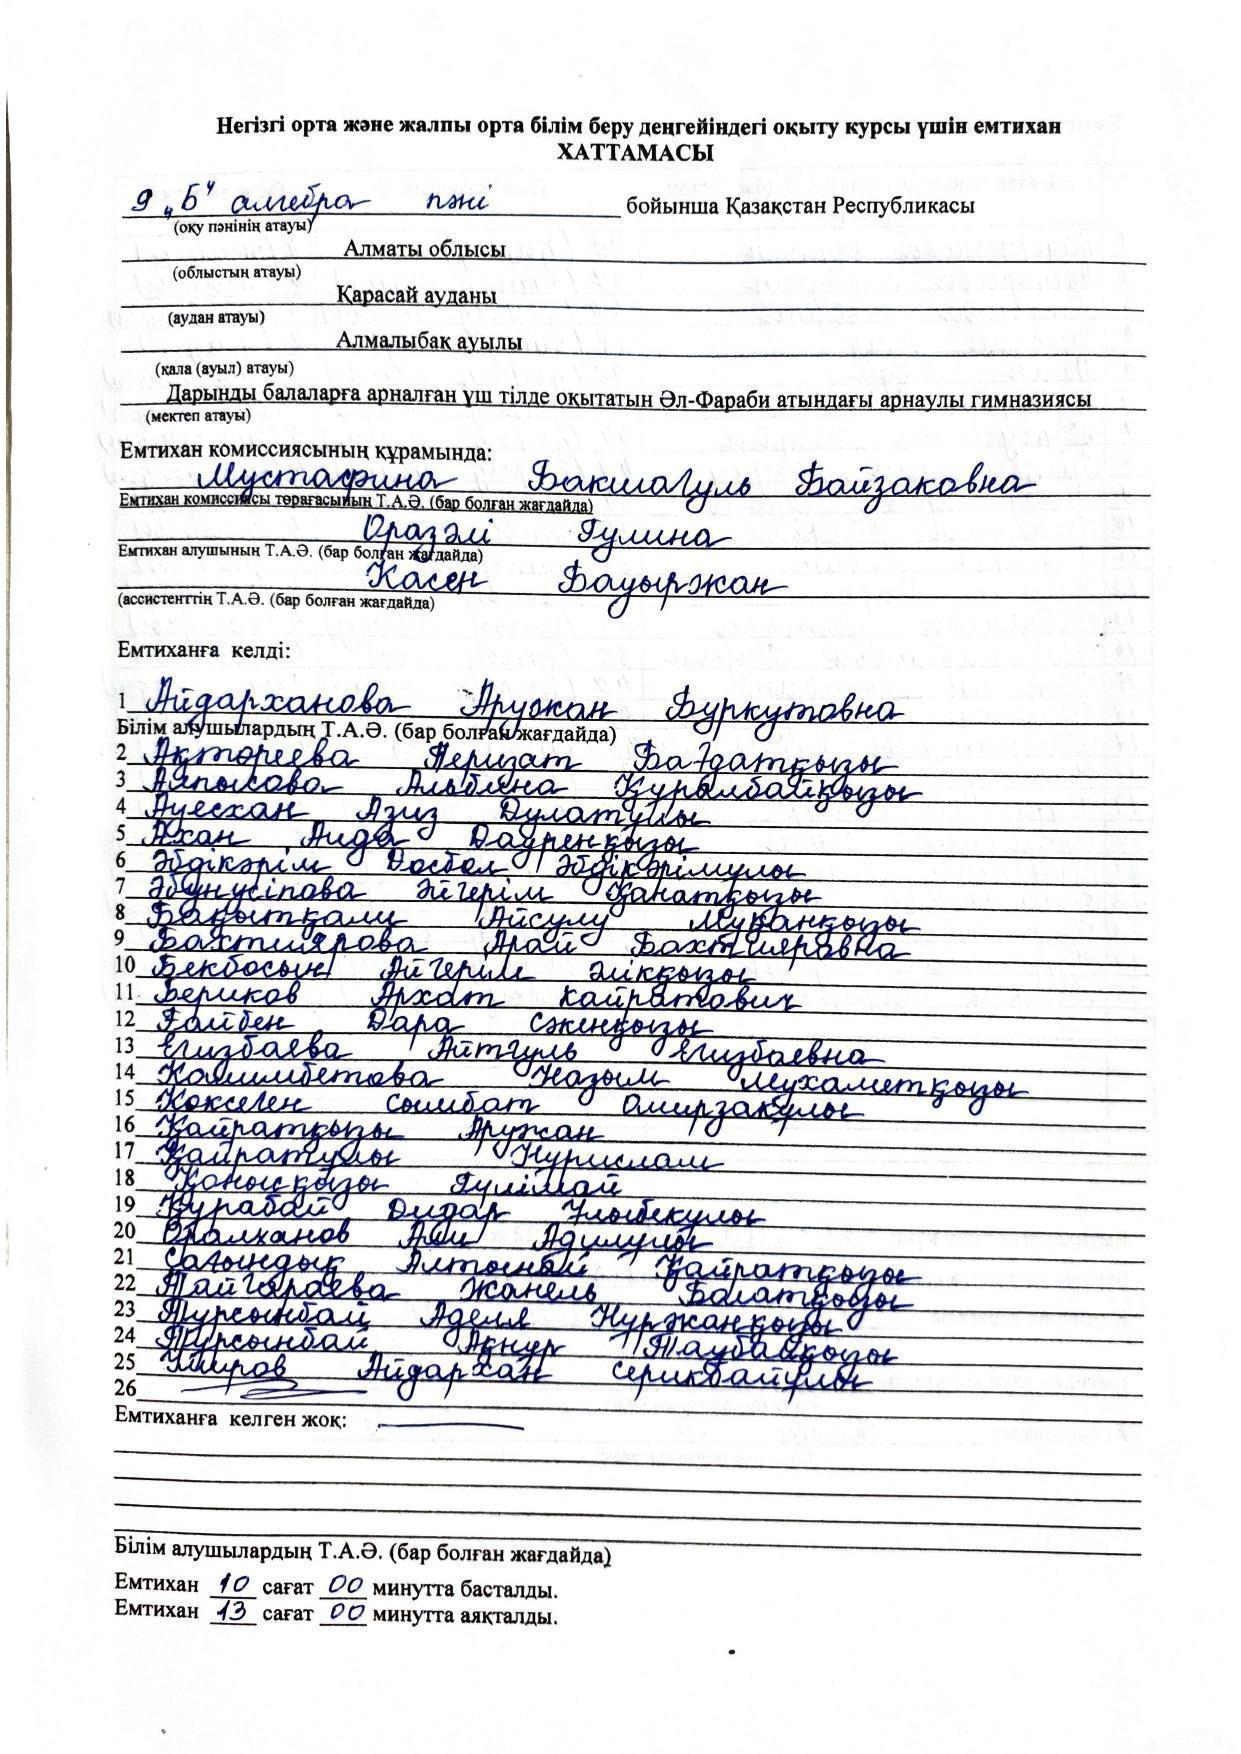 Негізгі орта және жалпы орта білім беру деңгейіндегі оқыту курсы үшін емтихан
ХАТТАМАСЫ
9 „Б" алгебра пәні бойынша Қазақстан Республикасы
(оқу пәнінің атауы)
Алматы облысы
(облыстың атауы)
Қарасай ауданы
(аудан атауы)
Алмалыбақ ауылы
(қала (ауыл) атауы)
Дарынды балаларға арналған үш тілде оқытатын Әл-Фараби атындағы арнаулы гимназиясы
(мектеп атауы)
Емтихан комиссиясының құрамында:
Мустафина Бакшагуль Байзаковна
Емтихан комиссиясы төрағасының Т.А.Ә. (бар болған жағдайда)
Оразәлі Гулина
Емтихан алушының Т.А.Ә. (бар болған жағдайда)
Касен Бауыржан
(ассистенттің Т.А.Ә. (бар болған жағдайда)
Емтиханға келді:
1 Айдарханова Аружан Буркутовна
Білім алушылардың Т.А.Ә. (бар болған жағдайда)
2 Ақтореева Аеризат Бағдатқызы
3 Аяпысова Альбина Құралбайқызы
4 Ауесхан Азиз Дулатұлы
5 Ахан Аида Дауренқызы
6 Әбдікәрім Досбол Әбдікәрімұлы
7 Әбунусіпова Әйгерім Қанатқызы
8 Бақытқали Айсулу Муқанқызы
9 Бахтиярова Арай Бахтияровна
10 Бекбосын Айгерім Әлікқызы
11 Бериков Архат Кайратович
12 Ғайбен Дара Сәкенқызы
13 Егизбаева Айтгуль Егизбаевна
14 Калимбетова Назым Мухаметқызы
15 Көксеген Сымбат Омирзақұлы
16 Қайратқызы Аружан
17 Қайратұлы Нурислам
18 Қанысқызы Гүлімай
19 Құрабай Дидар Ұлыбекұлы
20 Оралханов Али Адилұлы
21 Сағындық Алтынай Қайратқызы
22 Тайгараева Жанель Болатқызы
23 Тұрсынбай Аделя Нұржанқызы
24 Тұрсынбай Ақнұр Таубайқызы
25 Умиров Айдархан Серикбайұлы
26
Емтиханға келген жоқ:
Білім алушылардың Т.А.Ә. (бар болған жағдайда)
Емтихан 10 сағат 00 минутта басталды.
Емтихан 13 сағат 00 минутта аяқталды.